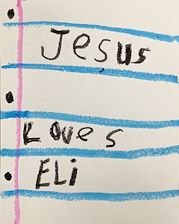 Jesus
Loves
ELi